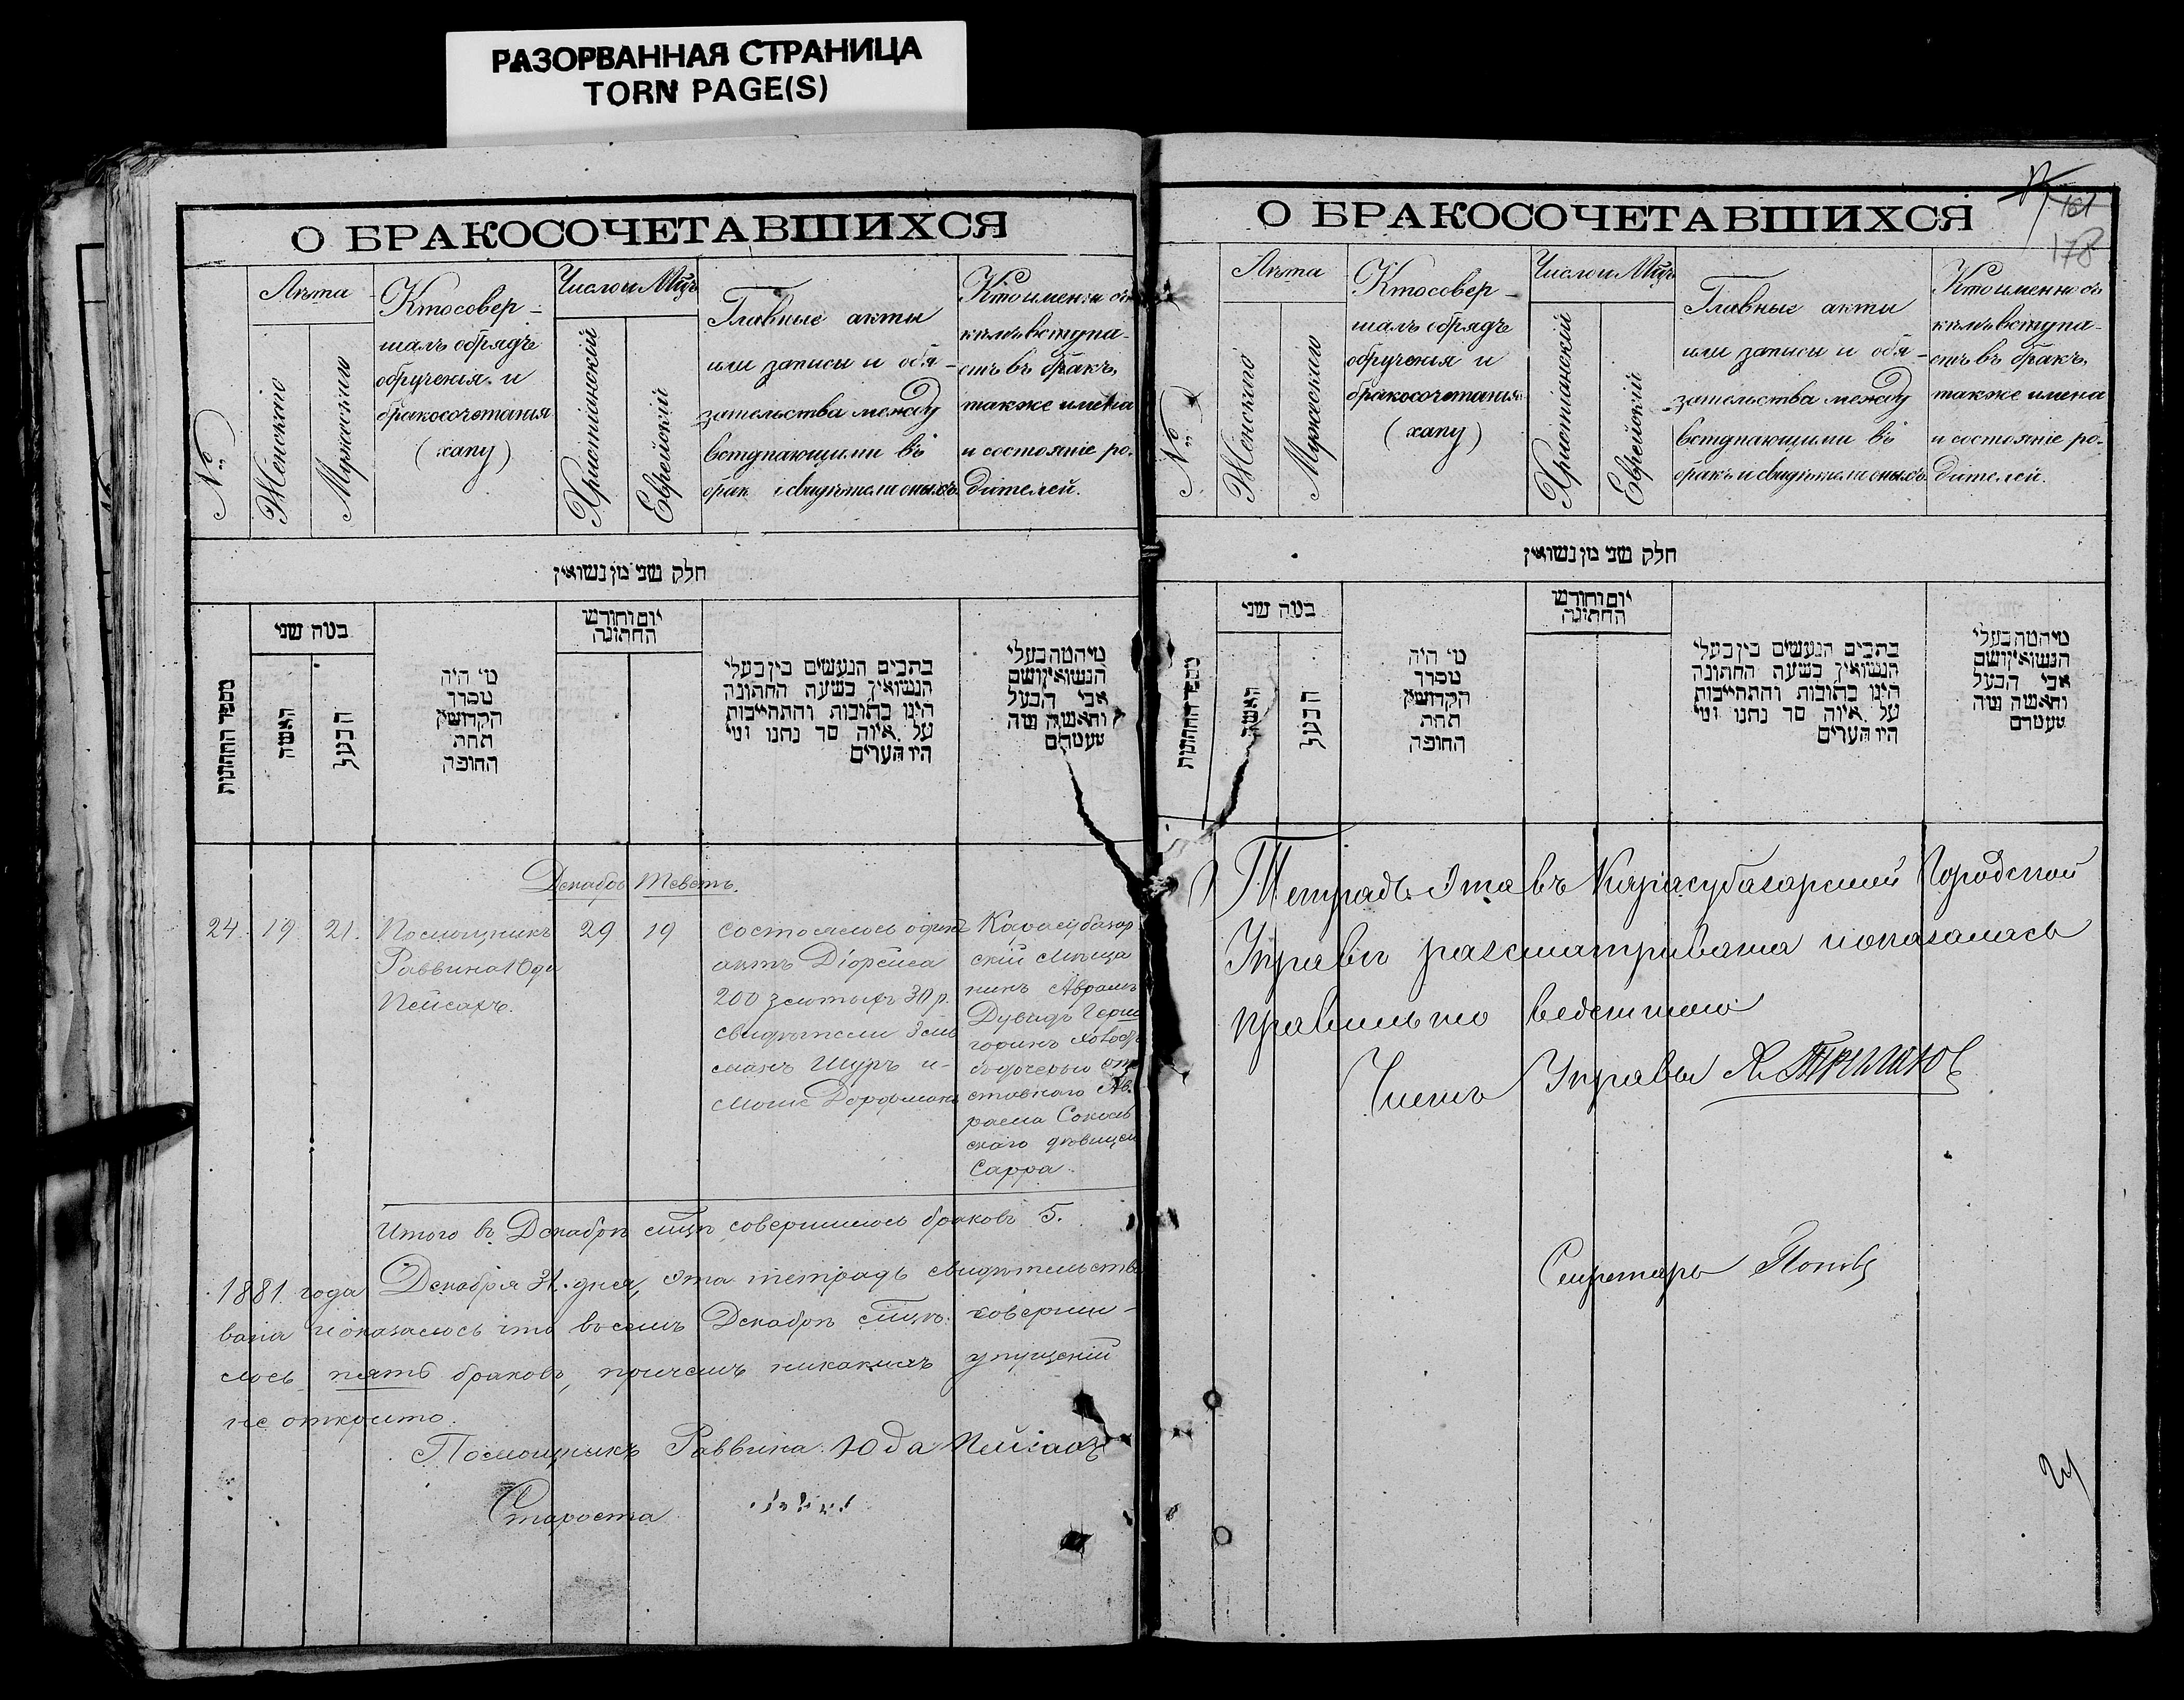 РАЗОРВАННАЯ СТРАНИЦА
TORN PAGE(S)
О БРАКОСОЧЕТАВШИХСЯ
№
Лѣта
Женскаго
Мужескаго
Кто совер-
шалъ обрядъ
обрученія и
бракосочетанія
(хапу)
Число и Мцъ
Христіанскій
Еврейскій
Главные акты
или записи и обя-
зательства между
вступающими въ
брак и свидѣтели оныхъ.
Кто именно съ
кѣмъ вступа-
етъ въ бракъ,
также имена
и состояніе ро-
дителей.
חלק שני מן נשואין
מספר החתונות
כמה שני
האשה
הבעל
מי היה
מסדר
הקדושין
תחת
החופה
יום וחודש
החתונה
כתבים הנעשים בין בעלי
הנשואין בשעת החתונה
היינו כתובות והתחייבות
על איזה סך נתנו ומי
היו העדים
מי המה בעלי
הנשואין ושם
אבי הבעל
והאשה ומה
מעמדם
Декабрь Теветъ.
24. 19. 21. Помощникъ
Раввина Юда
Пейсахъ.
29 19
состоялось одинъ
актъ Діорейса
200 злотыхъ 30 р.
свидѣтели Зель
манъ Шуръ и
Моше Дорфманъ
Карасубазар
скій мѣща
нинъ Аврамъ
Дувидъ Герш
ставнаго Ав-
рама Соколь
скаго дѣвицею
Сарра.
Итого въ Декабрѣ мцѣ совершилось браковъ 5.
1881 года Декабря 31. дня, эта тетрадь свидѣтельство
вана и оказалось что въ семъ Декабрѣ мцѣ соверши-
лось пять браковъ, причемъ никакихъ упущеній
не открыто.
Помощникъ Раввина Юда Пейсахъ
Староста
О БРАКОСОЧЕТАВШИХСЯ
161
178
№
Лѣта
Женскаго
Мужескаго
Кто совер-
шалъ обрядъ
обрученія и
бракосочетанія
(хапу)
Число и Мцъ
Христіанскій
Еврейскій
Главные акты
или записи и обя-
зательства между
вступающими въ
бракъ и свидѣтели оныхъ.
Кто именно съ
кѣмъ вступа-
етъ въ бракъ,
также имена
и состояніе ро-
дителей.
חלק שני מן נשואין
מספר החתונות
כמה שני
האשה
הבעל
מי היה
מסדר
הקדושין
תחת
החופה
יום וחודש
החתונה
כתבים הנעשים בין בעלי
הנשואין בשעת החתונה
היינו כתובות והתחייבות
על איזה סך נתנו ומי
היו העדים
מי המה בעלי
הנשואין ושם
אבי הבעל
והאשה ומה
מעמדם
Тетрадь эта въ Карасубазарской Городской
Управѣ разсматривана и оказалась
правильно веденною
Членъ Управы
Секретарь Поповъ
24